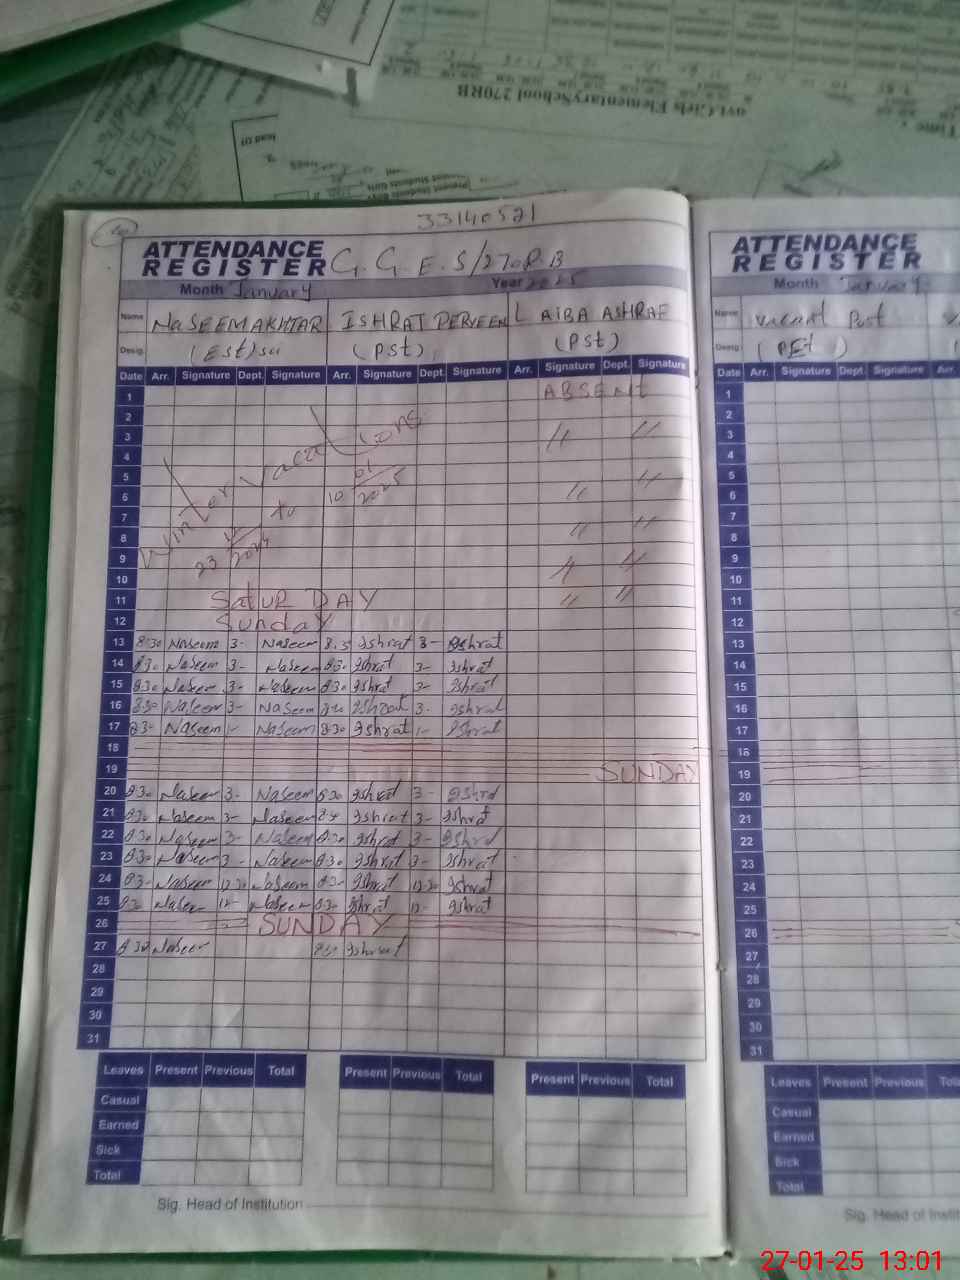 ovt.Girls ElementarySchool 270RB
Time
33140521
ATTENDANCE
REGISTER G. G. E. S/270R.B
Month January Year 2025
Name NaSEEM AKHTAR ISHRAT PERVEEN LAIBA ASHRAF
Desig. (Est) (PSt) (PSt)
Date Arr. Signature Dept. Signature Arr. Signature Dept. Signature Arr. Signature Dept. Signature
1 ABSENT
2
3 〃 〃
4
5 〃
6 〃
7 〃
8 〃
9 〃
10 〃
11 SatuRDAY 〃 〃
12 SundaY
Winter Vacations
23 to 10 01 2025
13 8:30 Naseem 3- Naseem 8.30 Ishrat 3- Ishrat
14 8.30 Naseem 3- Naseem 8.30 Ishrat 3- Ishrat
15 8.30 Naseem 3- Naseem 8.30 Ishrat 3- Ishrat
16 8.30 Naseem 3- Naseem Ishrat 3- Ishrat
17 830 Naseem 1- Naseem 8.30 Ishrat 1- Ishrat
18
19 SUNDAY
20 8.30 Naseem 3- Naseem 8.30 Ishrat 3- Ishrat
21 8.30 Naseem 3- Naseem Ishrat 3- Ishrat
22 8.30 Naseem 3- Naseem 8.30 Ishrat 3- Ishrat
23 8.30 Naseem 3- Naseem 8.30 Ishrat 3- Ishrat
24 Naseem 12.30 Naseem Ishrat 12.30 Ishrat
25 8.30 Naseem 12- Naseem 8.30 Ishrat 12- Ishrat
26 SUNDAY
27 8.30 Naseem 8.30 Ishrat
28
29
30
31
Leaves Present Previous Total Present Previous Total Present Previous Total
Casual
Earned
Sick
Total
Sig. Head of Institution
ATTENDANCE
REGISTER
Month January
Name Vacant Post
Desig. (PEt)
Date Arr. Signature Dept. Signature Arr.
1
2
3
4
5
6
7
8
9
10
11
12
13
14
15
16
17
18
19
20
21
22
23
24
25
26
27
28
29
30
31
Leaves Present Previous
Casual
Earned
Sick
Total
Sig. Head of
27-01-25 13:01